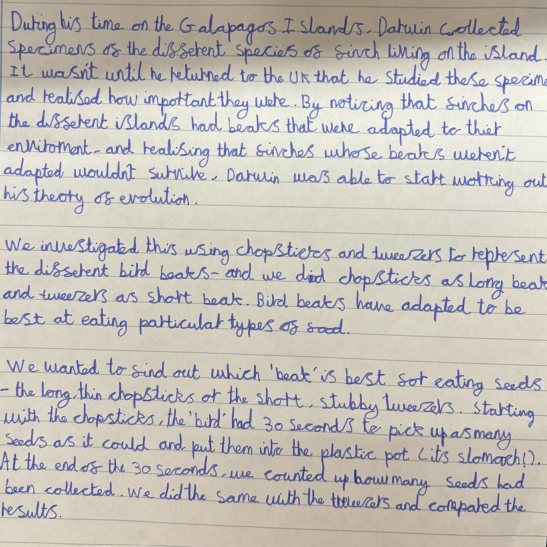 During his time on the Galapagos Islands, Darwin collected
specimens of the different species of finch living on the island.
It wasn't until he returned to the UK that he studied these specime
and realised how important they were. By noticing that finches on
the different islands had beaks that were adapted to thier
enviroment - and realising that finches whose beaks weren't
adapted wouldn't survive, Darwin was able to start working out
his theory of evolution.

We investigated this using chopsticks and tweezers to represent
the different bird beaks - and we did chopsticks as long beak
and tweezers as short beak. Bird beaks have adapted to be
best at eating particular types of food.

We wanted to find out which 'beak' is best for eating seeds
- the long, thin chopsticks or the short, stubby tweezers. Starting
with the chopsticks, the 'bird' had 30 seconds to pick up as many
seeds as it could and put them into the plastic pot (its stomach!).
At the end of the 30 seconds, we counted up how many seeds had
been collected. We did the same with the tweezers and compared the
results.